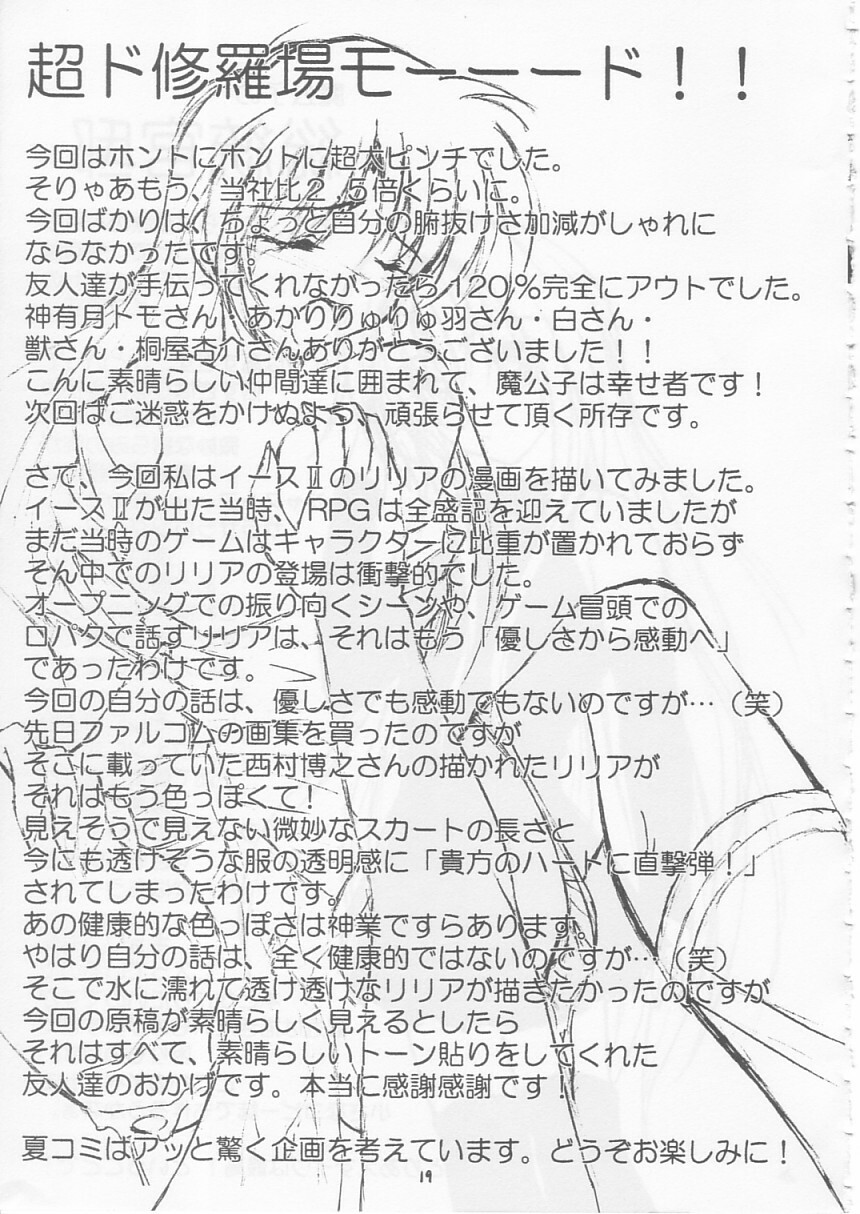 超ド修羅場モーーード！！
今回はホントにホントに超大ピンチでした。
そりゃあもう、当社比２.５倍くらいに。
今回ばかりは、ちょっと自分の腑抜けさ加減がしゃれに
ならなかったです。
友人達が手伝ってくれなかったら１２０％完全にアウトでした。
神有月トモさん・あかりりゅりゅ羽さん・白さん・
獣さん・桐屋杏介さんありがとうございました！！
こんに素晴らしい仲間達に囲まれて、魔公子は幸せ者です！
次回はご迷惑をかけぬよう、頑張らせて頂く所存です。
さて、今回私はイースⅡのリリアの漫画を描いてみました。
イースⅡが出た当時、RPGは全盛記を迎えていましたが
まだ当時のゲームはキャラクターに比重が置かれておらず
そん中でのリリアの登場は衝撃的でした。
オープニングでの振り向くシーンや、ゲーム冒頭での
口パクで話すリリアは、それはもう「優しさから感動へ」
であったわけです。
今回の自分の話は、優しさでも感動でもないのですが…（笑）
先日ファルコムの画集を買ったのですが
そこに載っていた西村博之さんの描かれたリリアが
それはもう色っぽくて！
見えそうで見えない微妙なスカートの長さと
今にも透けそうな服の透明感に「貴方のハートに直撃弾！」
されてしまったわけです。
あの健康的な色っぽさは神業ですらあります。
やはり自分の話は、全く健康的ではないのですが…（笑）
そこで水に濡れて透け透けなリリアが描きたかったのですが
今回の原稿が素晴らしく見えるとしたら
それはすべて、素晴らしいトーン貼りをしてくれた
友人達のおかげです。本当に感謝感謝です！
夏コミはアッと驚く企画を考えています。どうぞお楽しみに！
19